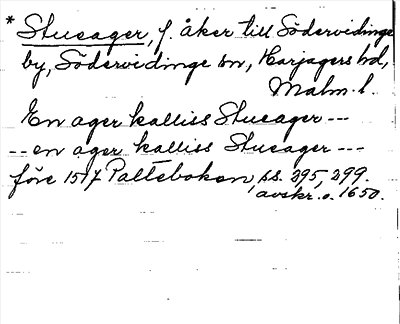 * Stueager, f. åker till Södervidinge
by, Södervidinge sn, Harjagers hd,
Malm. l.
En ager kalliss Stueager ---
-- en ager kalliss Stueager ---
före 1517 Palteboken, ss. 295, 299.
avskr. o. 1650.